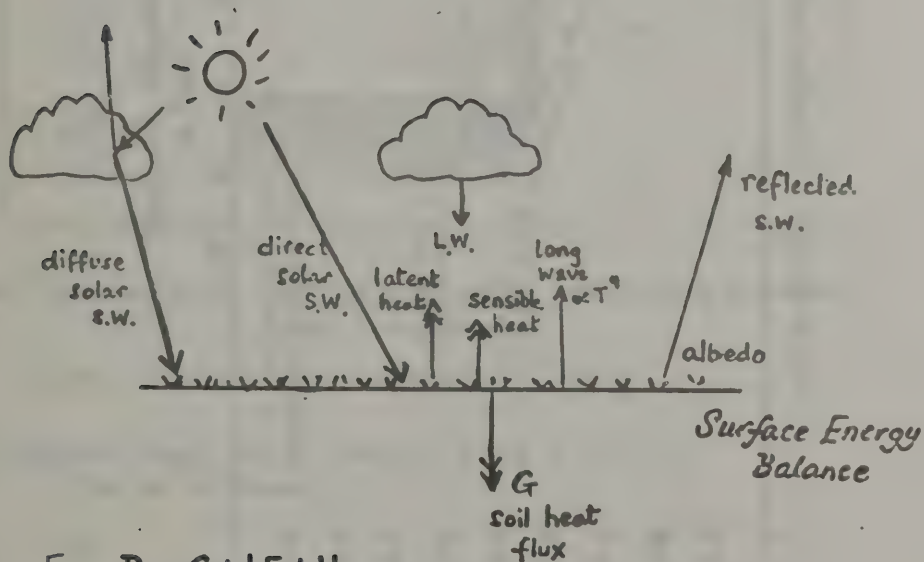 diffuse
solar
S.W.
direct
solar
S.W.
latent
heat
L.W.
sensible
heat
long
wave
∝T⁴
reflected
S.W.
albedo
Surface Energy
Balance
G
soil heat
flux